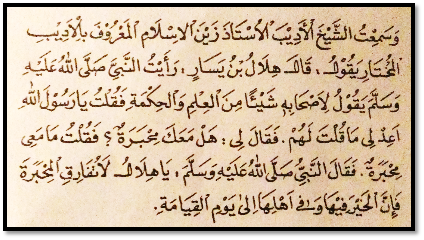 وَسَمِعْتُ الشَّيْخَ الْأَدِيبَ الْأُسْتَاذَ زَيْنَ الْإِسْلَامِ الْمَعْرُوفَ بِالْأَدِيبِ
الْمُخْتَارِ يَقُولُ: قَالَ هِلَالُ بْنُ يَسَارٍ: رَأَيْتُ النَّبِيَّ صَلَّى اللهُ عَلَيْهِ
وَسَلَّمَ يَقُولُ لِأَصْحَابِهِ شَيْئًا مِنَ الْعِلْمِ وَالْحِكْمَةِ فَقُلْتُ يَا رَسُولَ اللهِ
اَعِدْ لِي مَا قُلْتَ لَهُمْ. فَقَالَ لِي: هَلْ مَعَكَ مِحْبَرَةٌ؟ فَقُلْتُ مَا مَعِي
مِحْبَرَةٌ. فَقَالَ النَّبِيُّ صَلَّى اللهُ عَلَيْهِ وَسَلَّمَ: يَا هِلَالُ لَا تُفَارِقِ الْمِحْبَرَةَ
فَإِنَّ الْخَيْرَ فِيهَا وَفِي اَهْلِهَا اِلَى يَوْمِ الْقِيَامَةِ.